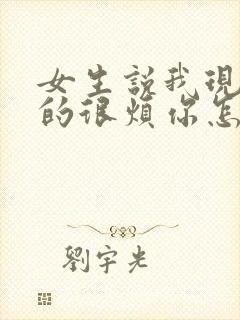 女生說我現
的很煩你怎
劉宇光